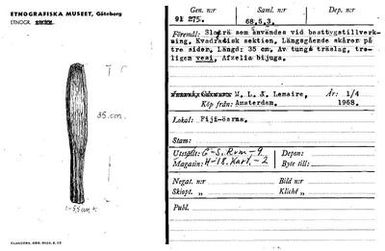 ETNOGRAFISKA MUSEET, Göteborg
ETNOGR.
35 cm.
Gen. n:r
91 275.
Saml. n:r
68.5.3.
Dep. n:r
Föremål: Slagträ som används vid basttygstillverk-
ning. Kvadratisk sektion, Längsgående skåror på
tre sidor, Längd: 35 cm, Av tungt träslag, tro-
ligen vesi, Afzelia bijuga.
M. L. Lemaire,
År: 1/4
Köp från: Amsterdam.
1968.
Lokal: Fiji-öarna.
Stam:
Utställt: G-S. Rum-9.
Depon:
Magasin: H-18. Kart.-2
Byte till:
Negat. n:r
Bild n:r
Skiopt. „
Kliché „
Publ.